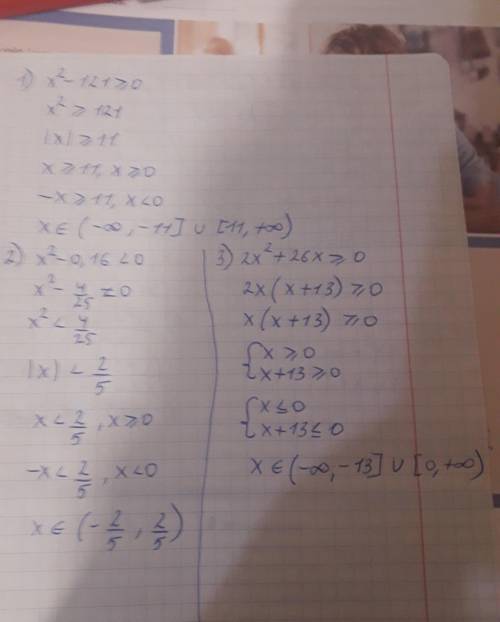 1) x² - 121 ≥ 0
x² ≥ 121
|x| ≥ 11
x ≥ 11, x ≥ 0
-x ≥ 11, x < 0
x ∈ (-∞, -11] ∪ [11, +∞)
2) x² - 0,16 < 0
x² - 4/25 ≠ 0
x² < 4/25
|x| < 2/5
x < 2/5, x ≥ 0
-x < 2/5, x < 0
x ∈ (-2/5, 2/5)
3) 2x² + 26x ≥ 0
2x(x+13) ≥ 0
x(x+13) ≥ 0
{ x ≥ 0
x+13 ≥ 0
{ x ≤ 0
x+13 ≤ 0
x ∈ (-∞, -13] ∪ [0, +∞)